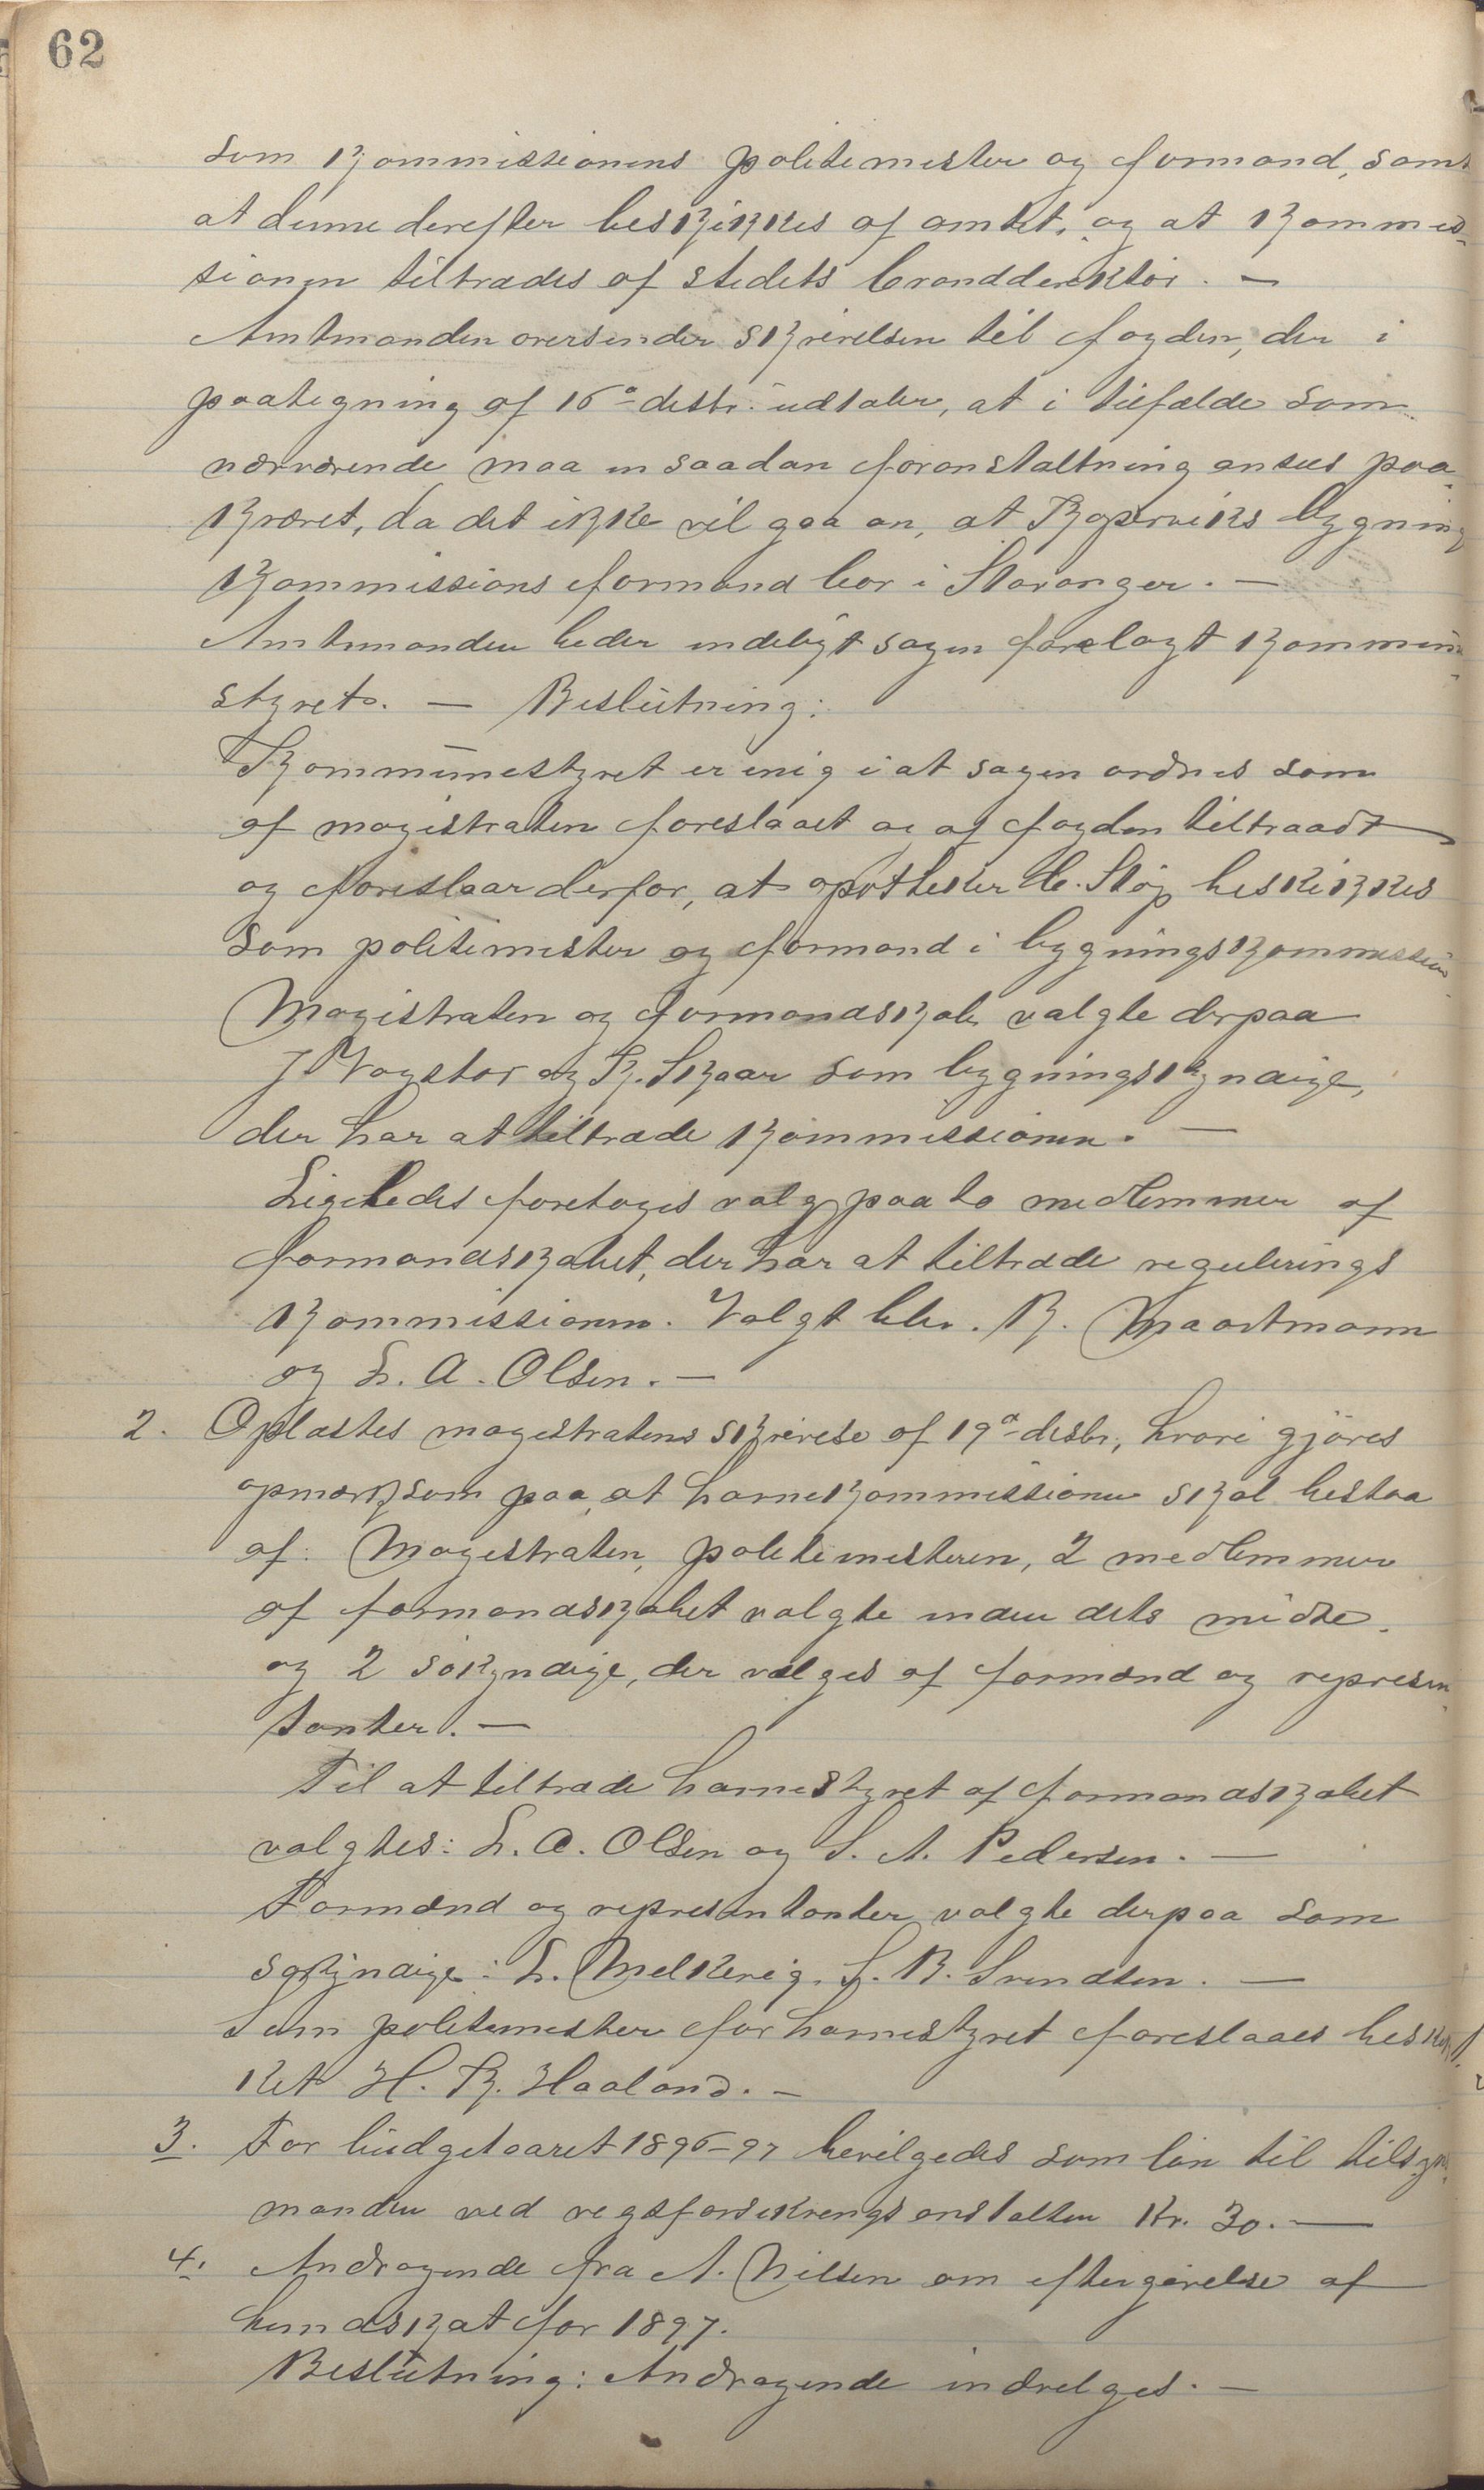 62
som kommissionens politimester og formand, samt
at denne derefter beskikkes af amtet, og at kommis-
sionen tiltrædes af stedets branddirektør. —
Amtmanden oversender skrivelsen til fogden, der i
paategning af 16de desbr. udtaler, at i tilfælde som
nærværende maa en saadan foranstaltning ansees paa-
krævet, da det ikke vil gaa an, at Kopervik's bygnings
kommissions formand bor i Stavanger. —
Amtmanden beder endeligt sagen forelagt kommune-
styret. — Beslutning:
Kommunestyret er enig i at sagen ordnes som
af magistraten foreslaaet og af fogden tiltraadt
og foreslaar derfor, at apotheker Chr. Støp beskikkes
som politimester og formand i bygningskommission
Magistraten og formandskab valgte derpaa
J. Vagstøl og K. Skaar som bygningskyndige,
der har at tiltræde kommissionen. —
Ligeledes foretoges valg paa to medlemmer af
formandskabet, der har at tiltræde regulerings
kommissionen. Valgt blev. B. Maartmann
og L. A. Olsen. —
2. Oplæstes magistratens skrivelse af 19de desbr., hvori gjøres
opmærksom paa, at havnekommissionen skal bestaa
af: Magistraten, politimesteren, 2 medlemmer
af formandskabet valgte inden dets midte
og 2 søkyndige, der vælges af formænd og represen-
tanter. —
Til at tiltræde havnestyret af formandskabet
valgtes: L. A. Olsen og S. A. Pedersen. —
Formænd og representanter valgte derpaa som
søkyndige: L. Melkevig, S. B. Svendsen. —
Som politimester for havnestyret foreslaaes beskik-
ket H. K. Haaland. —
3. For budgetaaret 1896–97 bevilgedes som løn til tilsyns-
manden ved regsforsikringsanstalten kr. 30. —
4. Andragende fra A. Nilsen om eftergivelse af
hundskat for 1897.
Beslutning: Andragende indvilges. —